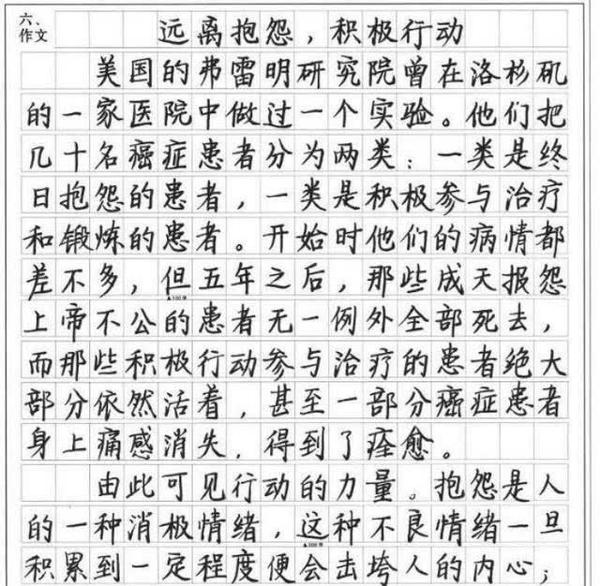 六、
作文
远离抱怨，积极行动
美国的弗雷明研究院曾在洛杉矶
的一家医院中做过一个实验。他们把
几十名癌症患者分为两类：一类是终
日抱怨的患者，一类是积极参与治疗
和锻炼的患者。开始时他们的病情都
差不多，但五年之后，那些成天报怨
上帝不公的患者无一例外全部死去，
而那些积极行动参与治疗的患者绝大
部分依然活着，甚至一部分癌症患者
身上痛感消失，得到了痊愈。
由此可见行动的力量。抱怨是人
的一种消极情绪，这种不良情绪一旦
积累到一定程度便会击垮人的内心；